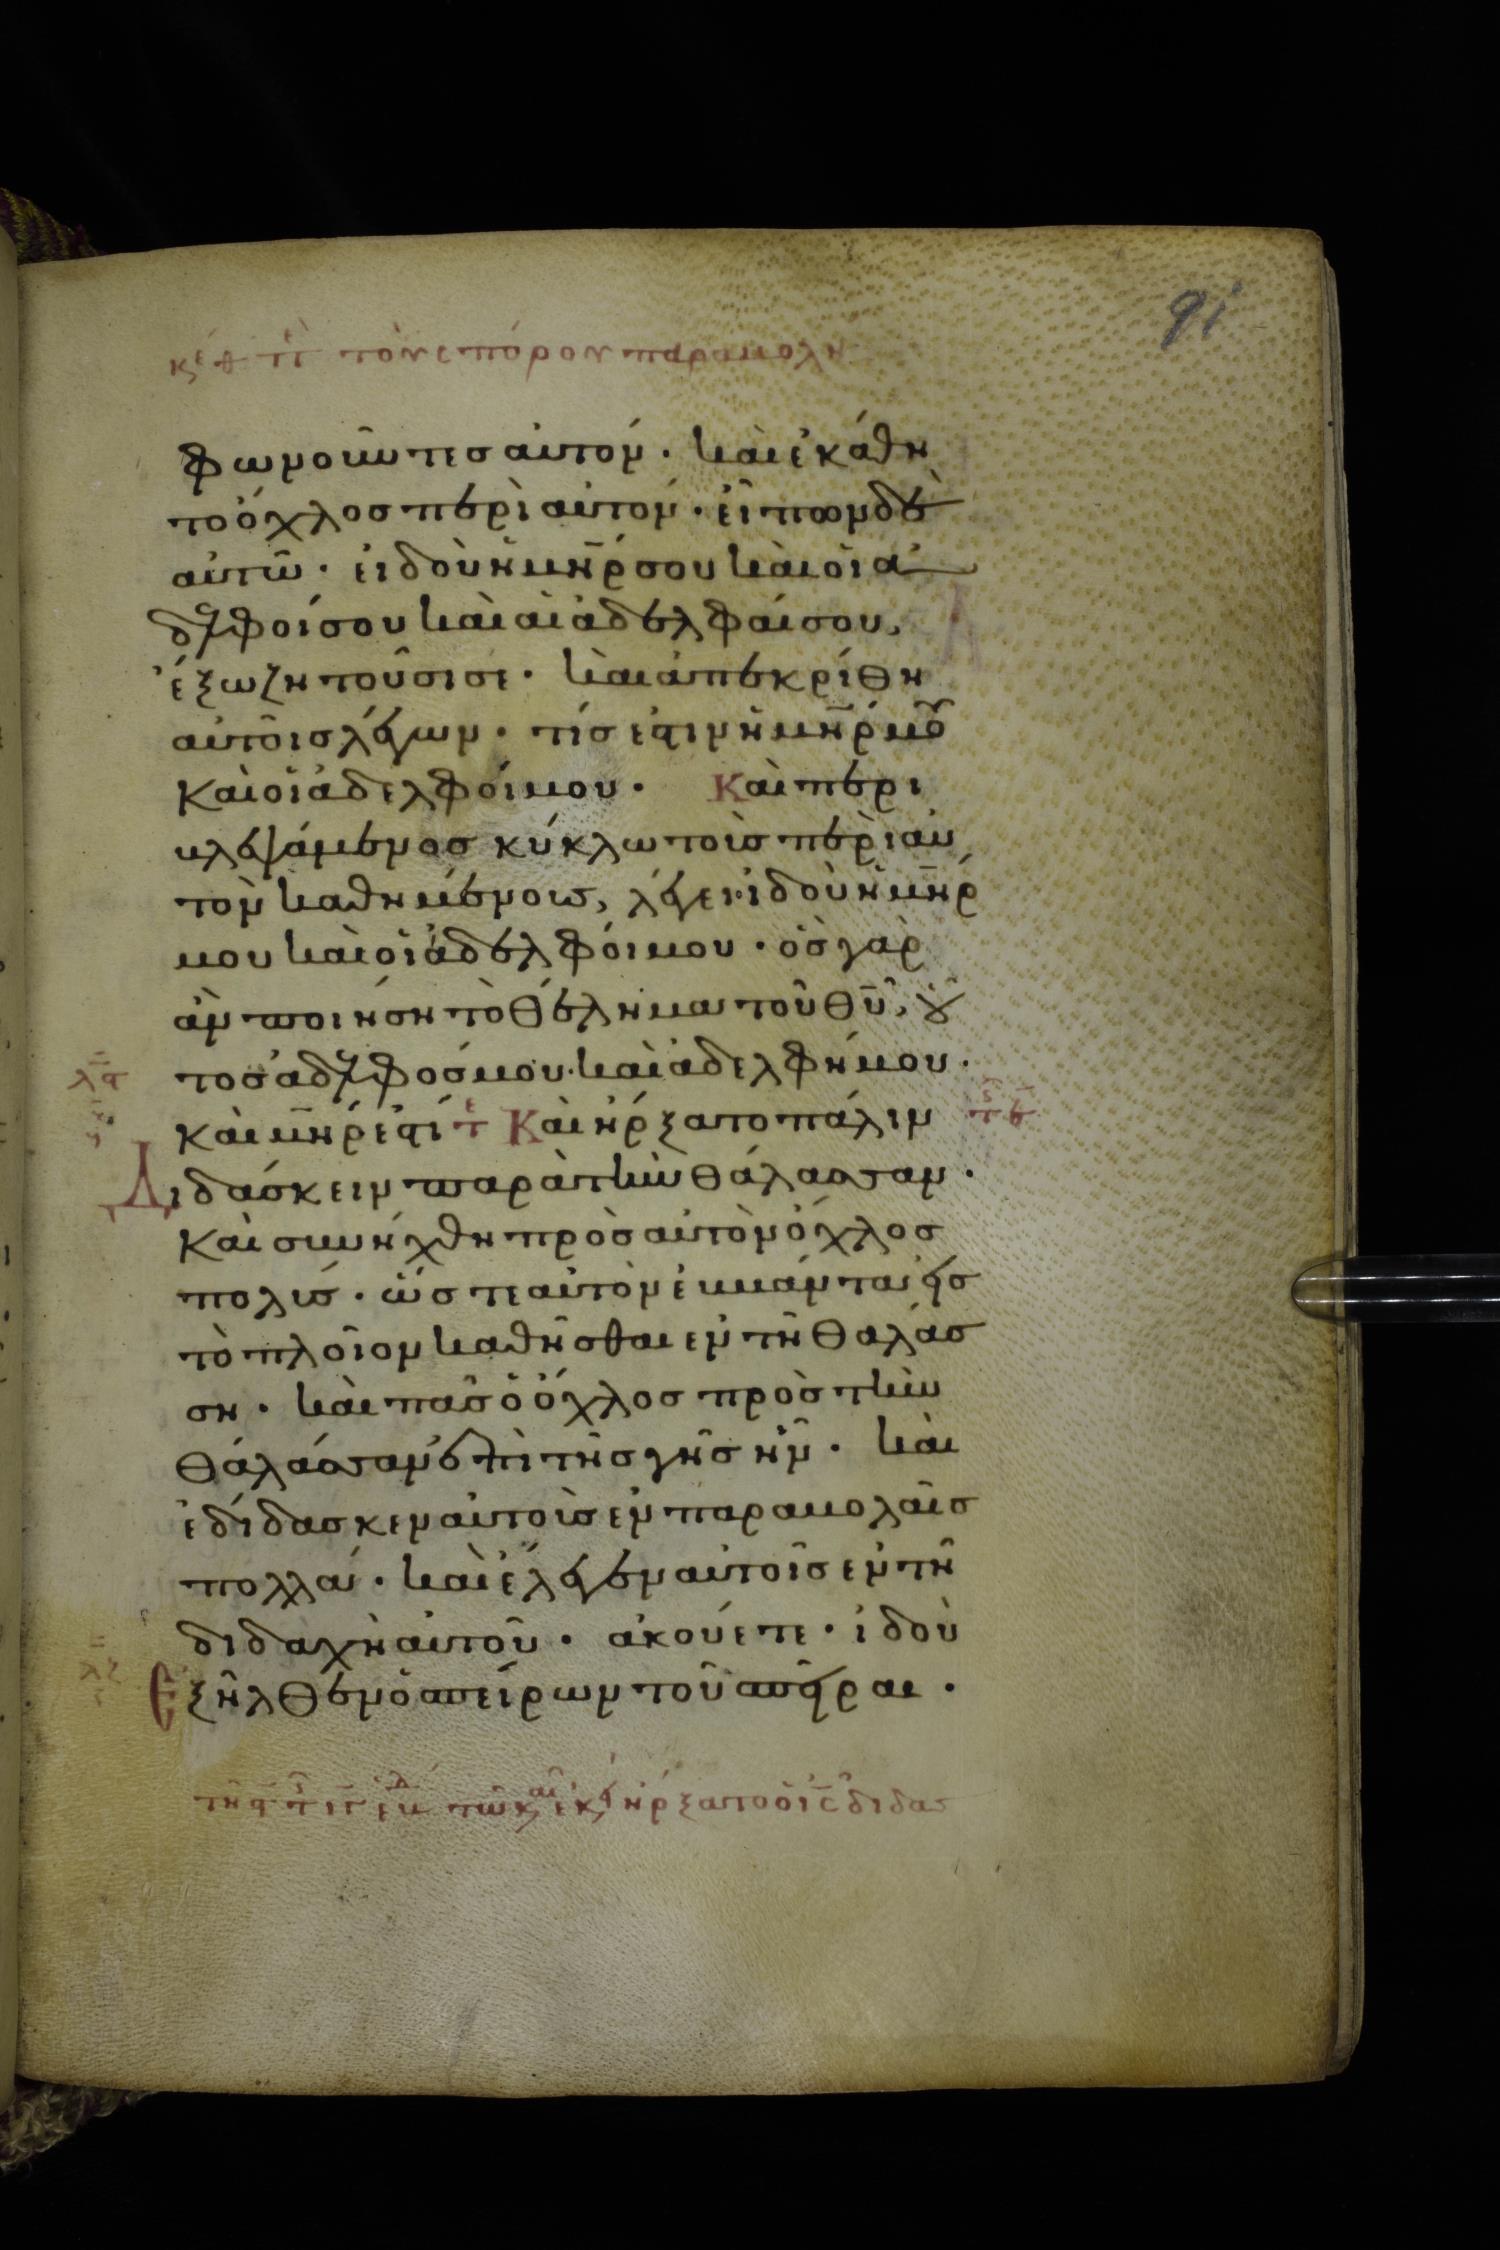 91
τὸν σπόρον παραβολή
φωνοῦντες αὐτόν· καὶ ἐκάθη
το ὄχλος περὶ αὐτόν· εἶπον δὲ
αὐτῶ· ἰδοὺ ἡ μηρ σου καὶ οἱ ἀ
δελφοί σου καὶ αἱ ἀδελφαί σου,
ἔξω ζητοῦσι σε· καὶ ἀπεκρίθη
αὐτοῖς λέγων· τίς ἐστιν ἡ μηρ μου
καὶ οἱ ἀδελφοί μου· Καὶ περι
βλεψάμενος κύκλω τοὺς περὶ αὐ
τὸν καθημένους, λέγει· ἰδοὺ ἡ μηρ
μου καὶ οἱ ἀδελφοί μου· ὃς γὰρ
ἂν ποιήση τὸ θέλημα τοῦ θυ, οὗ
τος ἀδελφός μου· καὶ ἀδελφή μου·
λϛ
καὶ μηρ ἐστί τε Καὶ ἤρξατο πάλιν
Διδάσκειν παρὰ τὴν θάλασσαν·
Καὶ συνήχθη πρὸς αὐτὸν ὄχλος
πολύς· ὥστε αὐτὸν ἐμβάντα εἰς
τὸ πλοῖον καθῆσθαι ἐν τῆ θαλάσ
ση· καὶ πᾶς ὁ ὄχλος πρὸς τὴν
θάλασσαν ἐπὶ τῆς γῆς ἦν· καὶ
ἐδίδασκεν αὐτοὺς ἐν παραβολαῖς
πολλά· καὶ ἔλεγεν αὐτοῖς ἐν τῆ
διδαχῆ αὐτοῦ· ἀκούετε· ἰδοὺ
λζ
Ἐξῆλθεν ὁ σπείρων τοῦ σπεῖραι·
τῶ και ἐκ ἤρξατο ὁ ις διδας